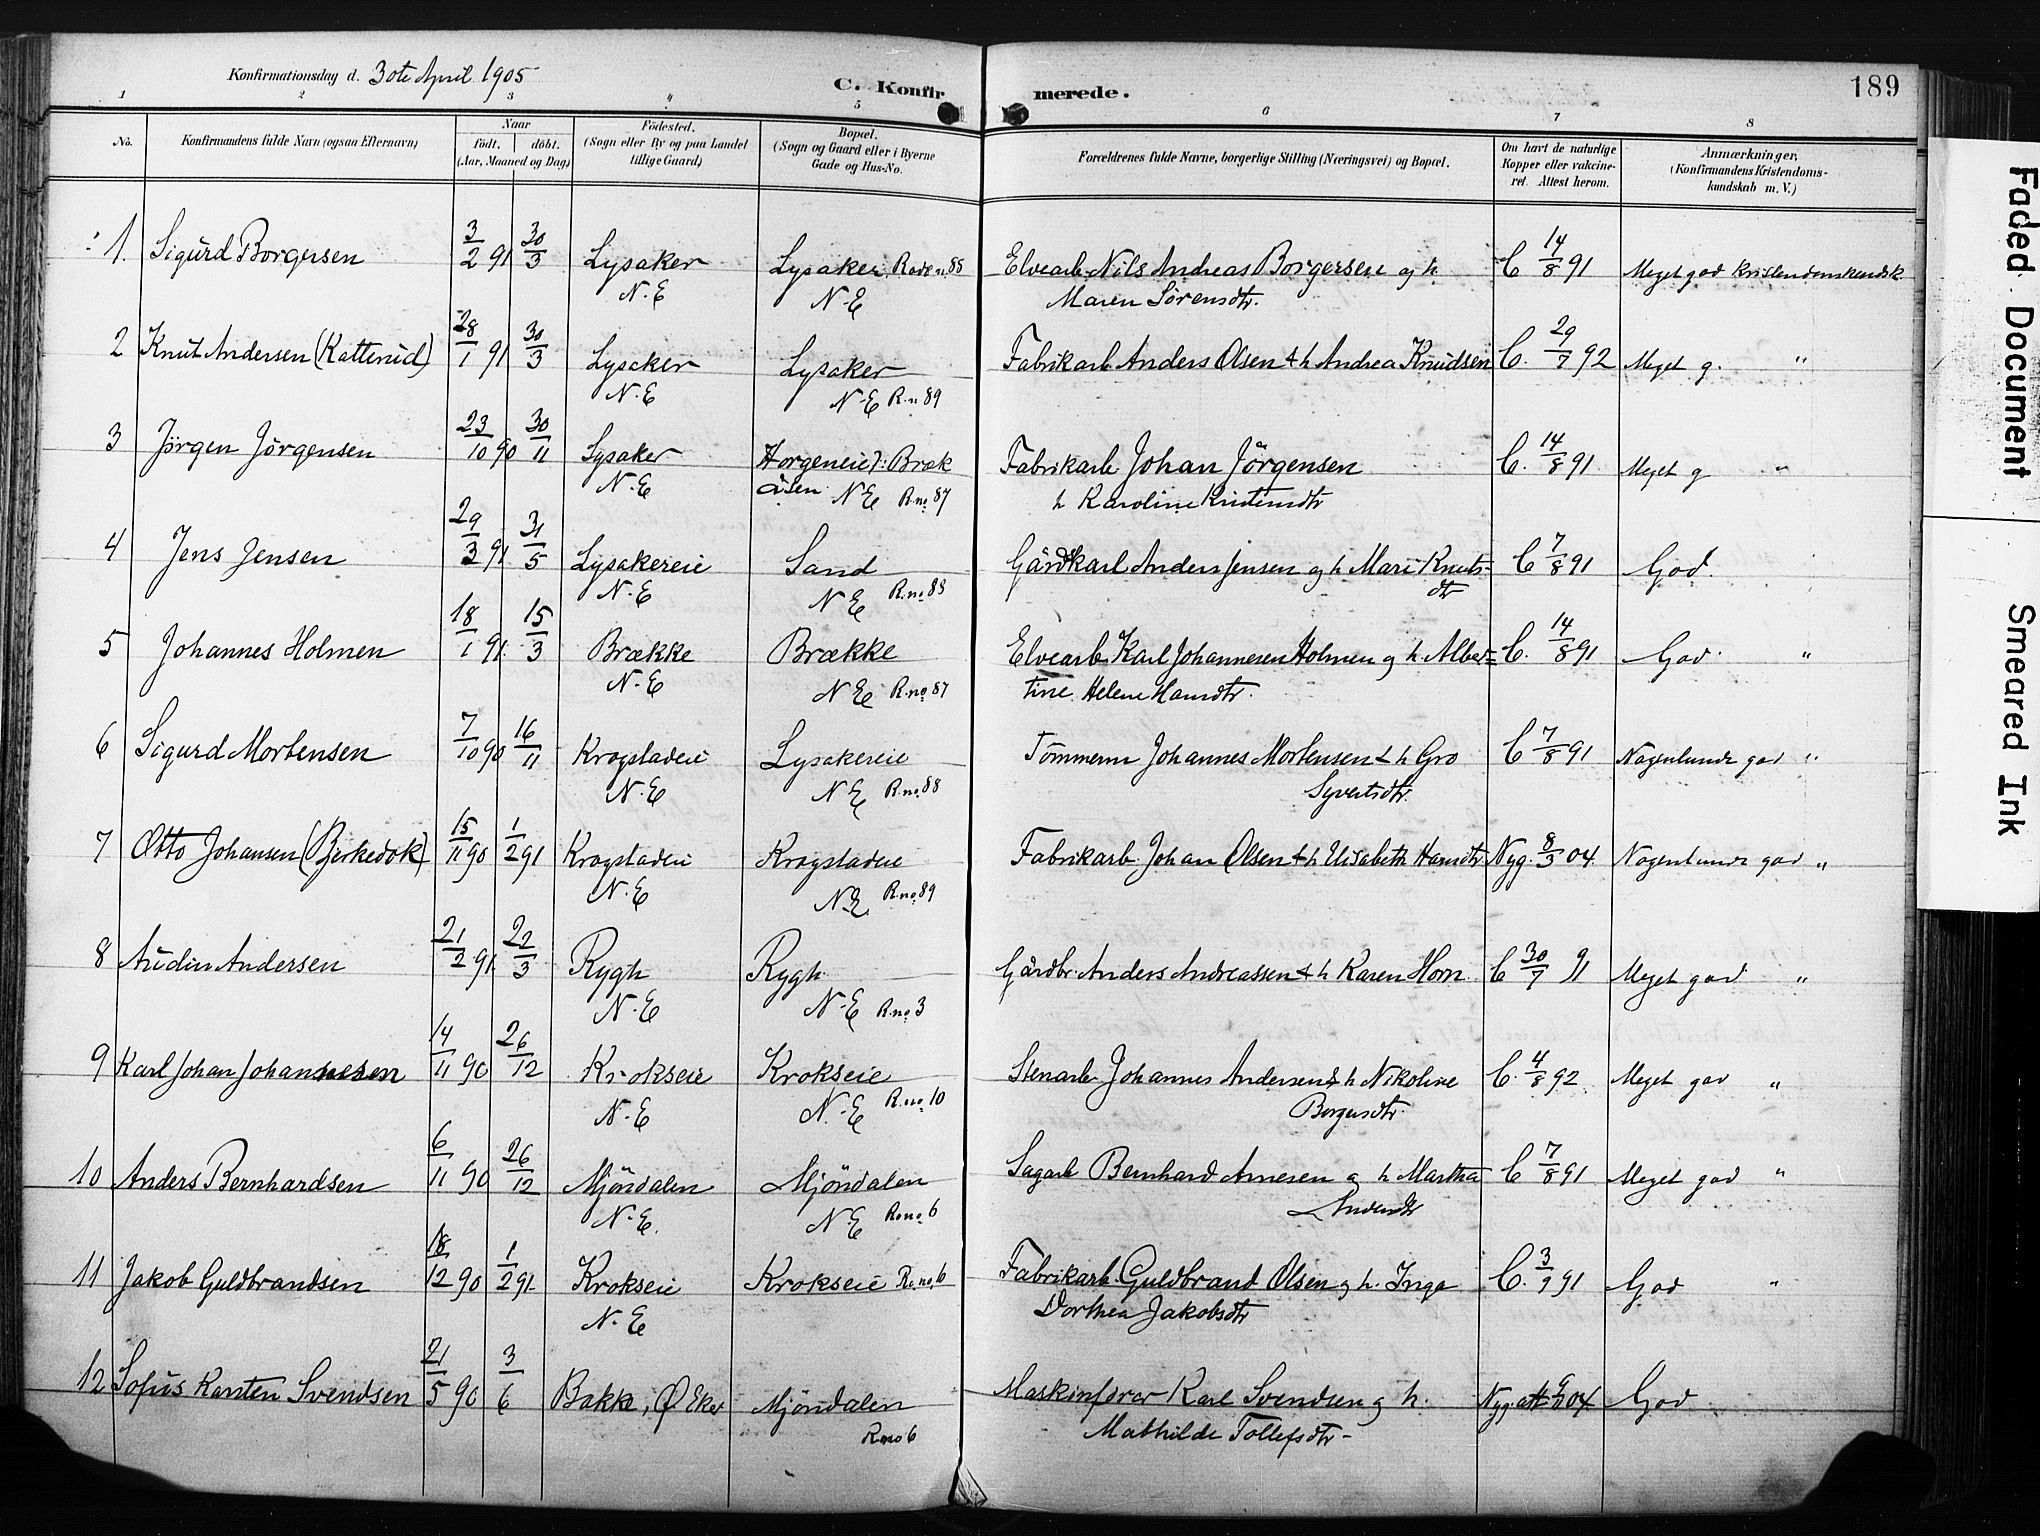 Konfirmationsdag d. 30te April 1905
C. Konfirmerede.
189
1 2 3 " 5 6 7 8
No.
Konfirmandens fulde Navn (ogsaa Efternavn)
Naar
født. døbt.
(Aar, Maaned og Dag)
Fødested.
(Sogn eller By og paa Landet
tillige Gaard)
Bopæl.
(Sogn og Gaard eller i Byerne
Gade og Hus-No.
Forældrenes fulde Navne, borgerlige Stilling (Næringsvei) og Bopæl.
Om havt de naturlige
Kopper eller vakcine-
ret. Attest herom.
Anmærkninger,
(Konfirmandens Kristendoms-
kundskab m. V.)
1. Sigurd Borgersen 3/2 91 30/3 Lysaker Lysaker Rode n. 88 Elvearb Nils Andreas Borgersen og h. C 14/8 91 Meget god kristendomskundsk
N. E N. E Maren Sørensdtr.
2 Knut Andersen (Katterud) 28/1 91 30/3 Lysaker Lysaker Fabrikarb Anders Olsen & h Andrea Knudsen C. 29/7 92 Meget g. "
N. E N. E R. n. 89
3 Jörgen Jörgensen 23/10 90 30/11 Lysaker Horgeneie): Bræk Fabrikarb Johan Jörgensen C. 14/8 91 Meget g "
N. E åsen N E R. no. 87 h Karoline Kristensdtr
4 Jens Jensen 29/3 91 31/5 Lysakereie Sand Gårdkarl Anders Jensen og h Mari Knuts- C 7/8 91 God.
N. E N E R. no. 88 dtr
5 Johannes Holmen 18/1 91 15/3 Brække Brække Elvearb Karl Johannesen Holmen og h Alber= C. 14/8 91 God. "
N. E N E R. no. 87 tine Helene Hansdtr.
6 Sigurd Mortensen 7/10 90 16/11 Krogstadeie Lysakereie Tömmerm Johannes Mortensen & h Gro C 7/8 91 Nogenlunde god "
N. E N E R. no. 88 Syvertsdtr.
7 Otto Johansen (Birkedok) 15/11 90 1/2 91 Krogstadeie Krogstadeie Fabrikarb Johan Olsen & h Elisabeth Hansdtr Nyg. 8/3 04 Nogenlunde god "
N. E N. E. R. no. 89
8 Audin Andersen 21/2 91 22/3 Rygh Rygh Gårdbr Anders Andreassen & h Karen Horn C 30/7 91 Meget god "
N. E N. E R. no. 3
9 Karl Johan Johannesen 14/11 90 26/12 Krokseie Krokseie Stenarb Johannes Andersen & h Nikoline C. 4/8 92 Meget god "
N. E N. E R. no. 10 Borgersdtr.
10 Anders Bernhardsen 6/11 90 26/12 Mjöndalen Mjöndalen Sagarb Bernhard Arnesen og h Martha C 7/8 91 Meget god "
N. E. N E R. no. 6 Andersdtr
11 Jakob Guldbrandsen 18/12 90 1/2 91 Krokseie Krokseie R. no. 6 Fabrikarb. Guldbrand Olsen og h. Inge C. 3/9 91 God "
N. E Dorthea Jakobsdtr
12 Sofus Karsten Svendsen 21/5 90 3/6 Bakke, Ø Eker Mjöndalen Maskinfører Karl Svendsen og h. Nyg. att 04 God
R. no 6 Mathilde Tollefsdtr-
Faded Document
Smeared Ink